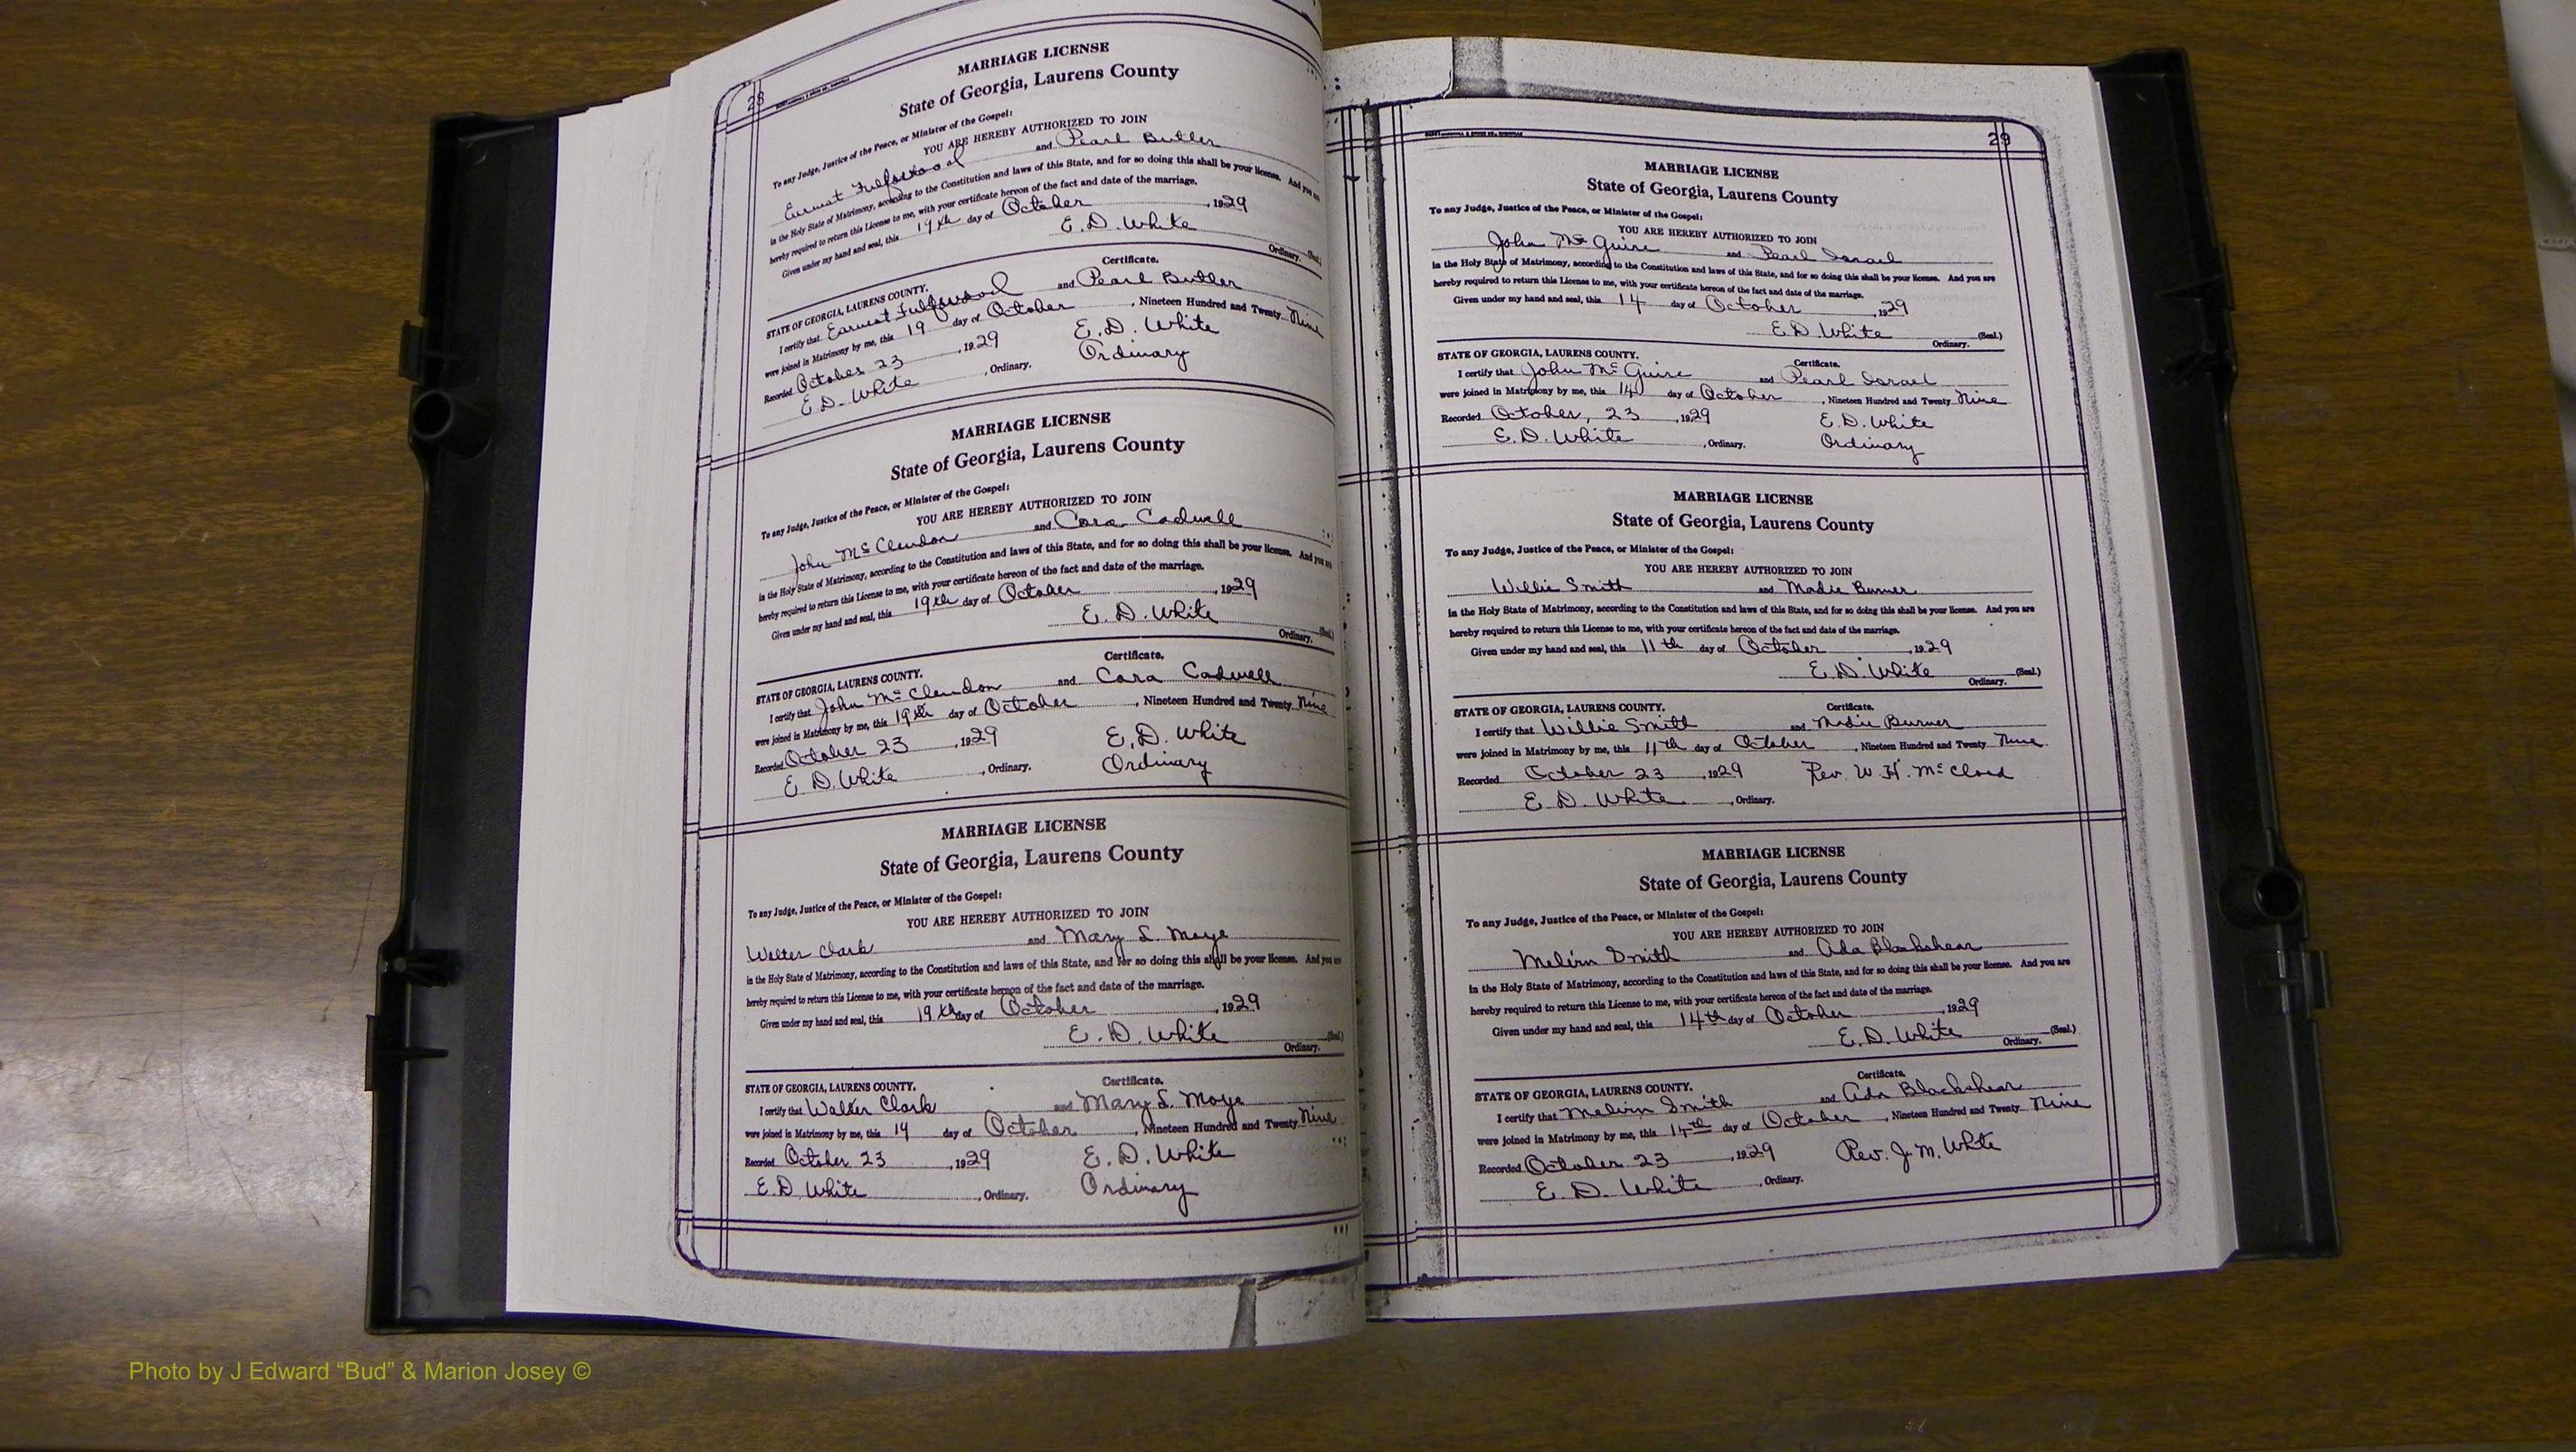 28
MARRIAGE LICENSE
State of Georgia, Laurens County
To any Judge, Justice of the Peace, or Minister of the Gospel:
YOU ARE HEREBY AUTHORIZED TO JOIN
Earnest Fulfwood and Pearl Butler
in the Holy State of Matrimony, according to the Constitution and laws of this State, and for so doing this shall be your license. And you are
hereby required to return this License to me, with your certificate hereon of the fact and date of the marriage.
Given under my hand and seal, this 19th day of October, 1929
E. D. White
Ordinary. (Seal.)
Certificate.
STATE OF GEORGIA, LAURENS COUNTY.
I certify that Earnest Fulfwood and Pearl Butler
were joined in Matrimony by me, this 19 day of October, Nineteen Hundred and Twenty Nine
Recorded October 23, 1929 E. D. White
E. D. White, Ordinary. Ordinary
MARRIAGE LICENSE
State of Georgia, Laurens County
To any Judge, Justice of the Peace, or Minister of the Gospel:
YOU ARE HEREBY AUTHORIZED TO JOIN
John McClendon and Cora Cadwell
in the Holy State of Matrimony, according to the Constitution and laws of this State, and for so doing this shall be your license. And you are
hereby required to return this License to me, with your certificate hereon of the fact and date of the marriage.
Given under my hand and seal, this 19th day of October, 1929
E. D. White
Ordinary. (Seal.)
Certificate.
STATE OF GEORGIA, LAURENS COUNTY.
I certify that John McClendon and Cara Cadwell
were joined in Matrimony by me, this 19th day of October, Nineteen Hundred and Twenty Nine
Recorded October 23, 1929 E. D. White
E. D. White, Ordinary. Ordinary
MARRIAGE LICENSE
State of Georgia, Laurens County
To any Judge, Justice of the Peace, or Minister of the Gospel:
YOU ARE HEREBY AUTHORIZED TO JOIN
Walter Clark and Mary L. Moye
in the Holy State of Matrimony, according to the Constitution and laws of this State, and for so doing this shall be your license. And you are
hereby required to return this License to me, with your certificate hereon of the fact and date of the marriage.
Given under my hand and seal, this 19th day of October, 1929
E. D. White
Ordinary. (Seal.)
Certificate.
STATE OF GEORGIA, LAURENS COUNTY.
I certify that Walter Clark and Mary L. Moye
were joined in Matrimony by me, this 19 day of October, Nineteen Hundred and Twenty Nine
Recorded October 23, 1929 E. D. White
E. D. White, Ordinary. Ordinary
29
MARRIAGE LICENSE
State of Georgia, Laurens County
To any Judge, Justice of the Peace, or Minister of the Gospel:
YOU ARE HEREBY AUTHORIZED TO JOIN
John McGuire and Pearl Israel
in the Holy State of Matrimony, according to the Constitution and laws of this State, and for so doing this shall be your license. And you are
hereby required to return this License to me, with your certificate hereon of the fact and date of the marriage.
Given under my hand and seal, this 14 day of October, 1929
E. D. White (Seal.)
Ordinary.
STATE OF GEORGIA, LAURENS COUNTY. Certificate.
I certify that John McGuire and Pearl Israel
were joined in Matrimony by me, this 14 day of October, Nineteen Hundred and Twenty Nine
Recorded October, 23, 1929 E. D. White
E. D. White, Ordinary. Ordinary
MARRIAGE LICENSE
State of Georgia, Laurens County
To any Judge, Justice of the Peace, or Minister of the Gospel:
YOU ARE HEREBY AUTHORIZED TO JOIN
Willie Smith and Madie Burner
in the Holy State of Matrimony, according to the Constitution and laws of this State, and for so doing this shall be your license. And you are
hereby required to return this License to me, with your certificate hereon of the fact and date of the marriage.
Given under my hand and seal, this 11th day of October, 1929
E. D. White (Seal.)
Ordinary.
STATE OF GEORGIA, LAURENS COUNTY. Certificate.
I certify that Willie Smith and Madie Burner
were joined in Matrimony by me, this 11th day of October, Nineteen Hundred and Twenty Nine
Recorded October 23, 1929 Rev. W. H. McCloud
E. D. White, Ordinary.
MARRIAGE LICENSE
State of Georgia, Laurens County
To any Judge, Justice of the Peace, or Minister of the Gospel:
YOU ARE HEREBY AUTHORIZED TO JOIN
Melvin Smith and Ada Blackshear
in the Holy State of Matrimony, according to the Constitution and laws of this State, and for so doing this shall be your license. And you are
hereby required to return this License to me, with your certificate hereon of the fact and date of the marriage.
Given under my hand and seal, this 14th day of October, 1929
E. D. White (Seal.)
Ordinary.
STATE OF GEORGIA, LAURENS COUNTY. Certificate.
I certify that Melvin Smith and Ada Blackshear
were joined in Matrimony by me, this 14th day of October, Nineteen Hundred and Twenty Nine
Recorded October 23, 1929 Rev. J. M. White
E. D. White, Ordinary.
Photo by J Edward “Bud” & Marion Josey ©